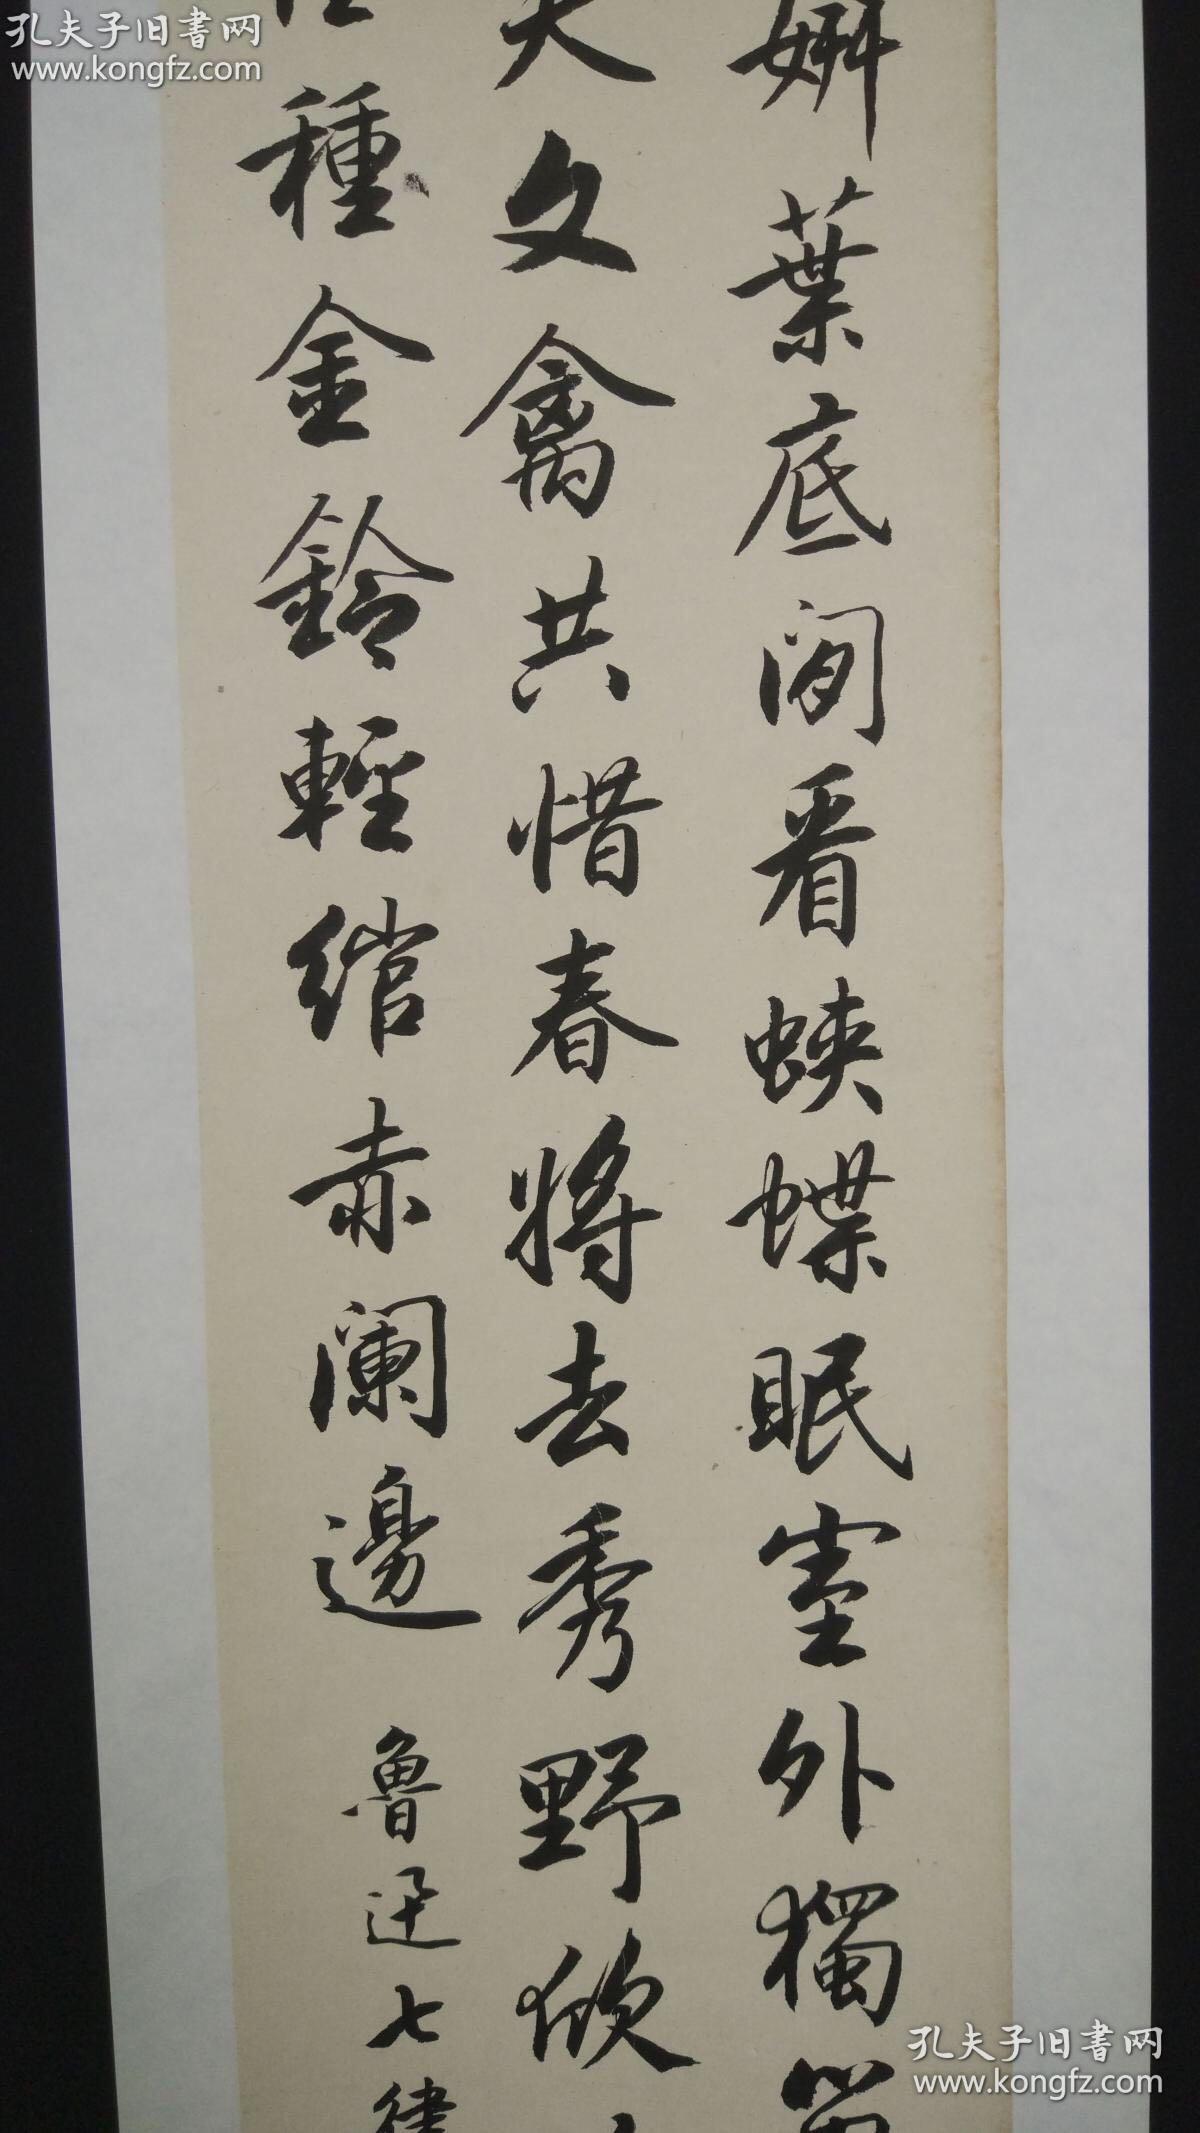 孔夫子旧書网
www.kongfz.com
葉底闲看蛱蝶眠室外獨
天文禽共惜春將去秀野欣
種金鈴輕綰赤闌邊
魯迅七律
孔夫子旧書网
www.kongfz.com